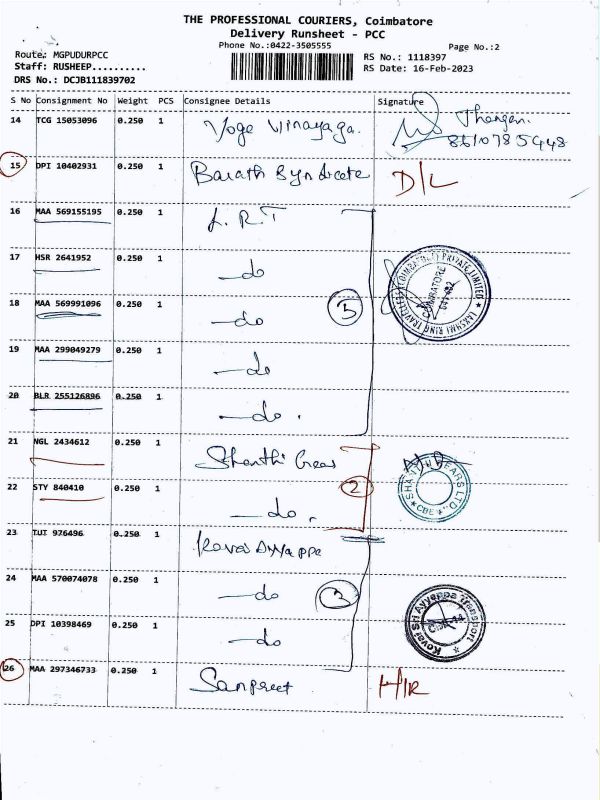 THE PROFESSIONAL COURIERS, Coimbatore
Delivery Runsheet - PCC
Phone No.:0422-3505555
Page No.:2
Route: MGPUDURPCC
Staff: RUSHEEP..........
DRS No.: DCJB111839702
RS No.: 1118397
RS Date: 16-Feb-2023
S No Consignment No Weight PCS Consignee Details Signature
14 TCG 15053096 0.250 1 Voge Vinayaga. Thangan.
8610785448
15 DPI 10402931 0.250 1 Barath Syndicate D/L
16 MAA 569155195 0.250 1 L.R.T
17 HSR 2641952 0.250 1 —do
18 MAA 569991096 0.250 1 —do 5
LAKSHMI RING TRAVELLERS (COIMBATORE) PRIVATE LIMITED
COIMBATORE
19 MAA 299049279 0.250 1 —do
20 BLR 255126896 0.250 1 —do.
21 NGL 2434612 0.250 1 Shanthi Gears
22 STY 840410 0.250 1 —do. 2
SHANTHI GEARS LTD.
CBE
23 TUT 976496 0.250 1 Kovai Ayyappa
24 MAA 570074078 0.250 1 —do 3
25 DPI 10398469 0.250 1 —do
Kovai Sri Ayyappa Transport
26 MAA 297346733 0.250 1 Sanpreet H/R